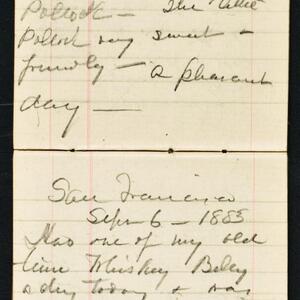 Pollock — The little
Pollock very sweet &
friendly — a pleasant
day —
San Francisco
Sepr 6 — 1883
Was one of my old
time Whiskey
a day today & was